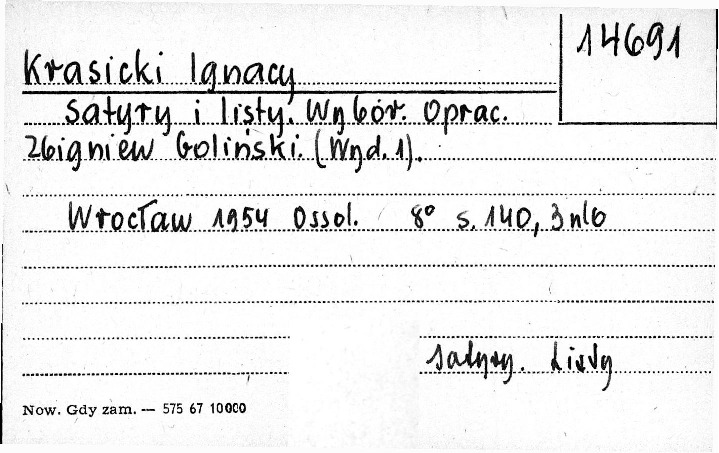 14691
Krasicki Ignacy
Satyry i listy. Wybór. Oprac.
Zbigniew Goliński. (Wyd. 1).
Wrocław 1954 Ossol. 8° s. 140, 3 nlb
Satyry. Listy
Now. Gdy zam. — 575 67 10000